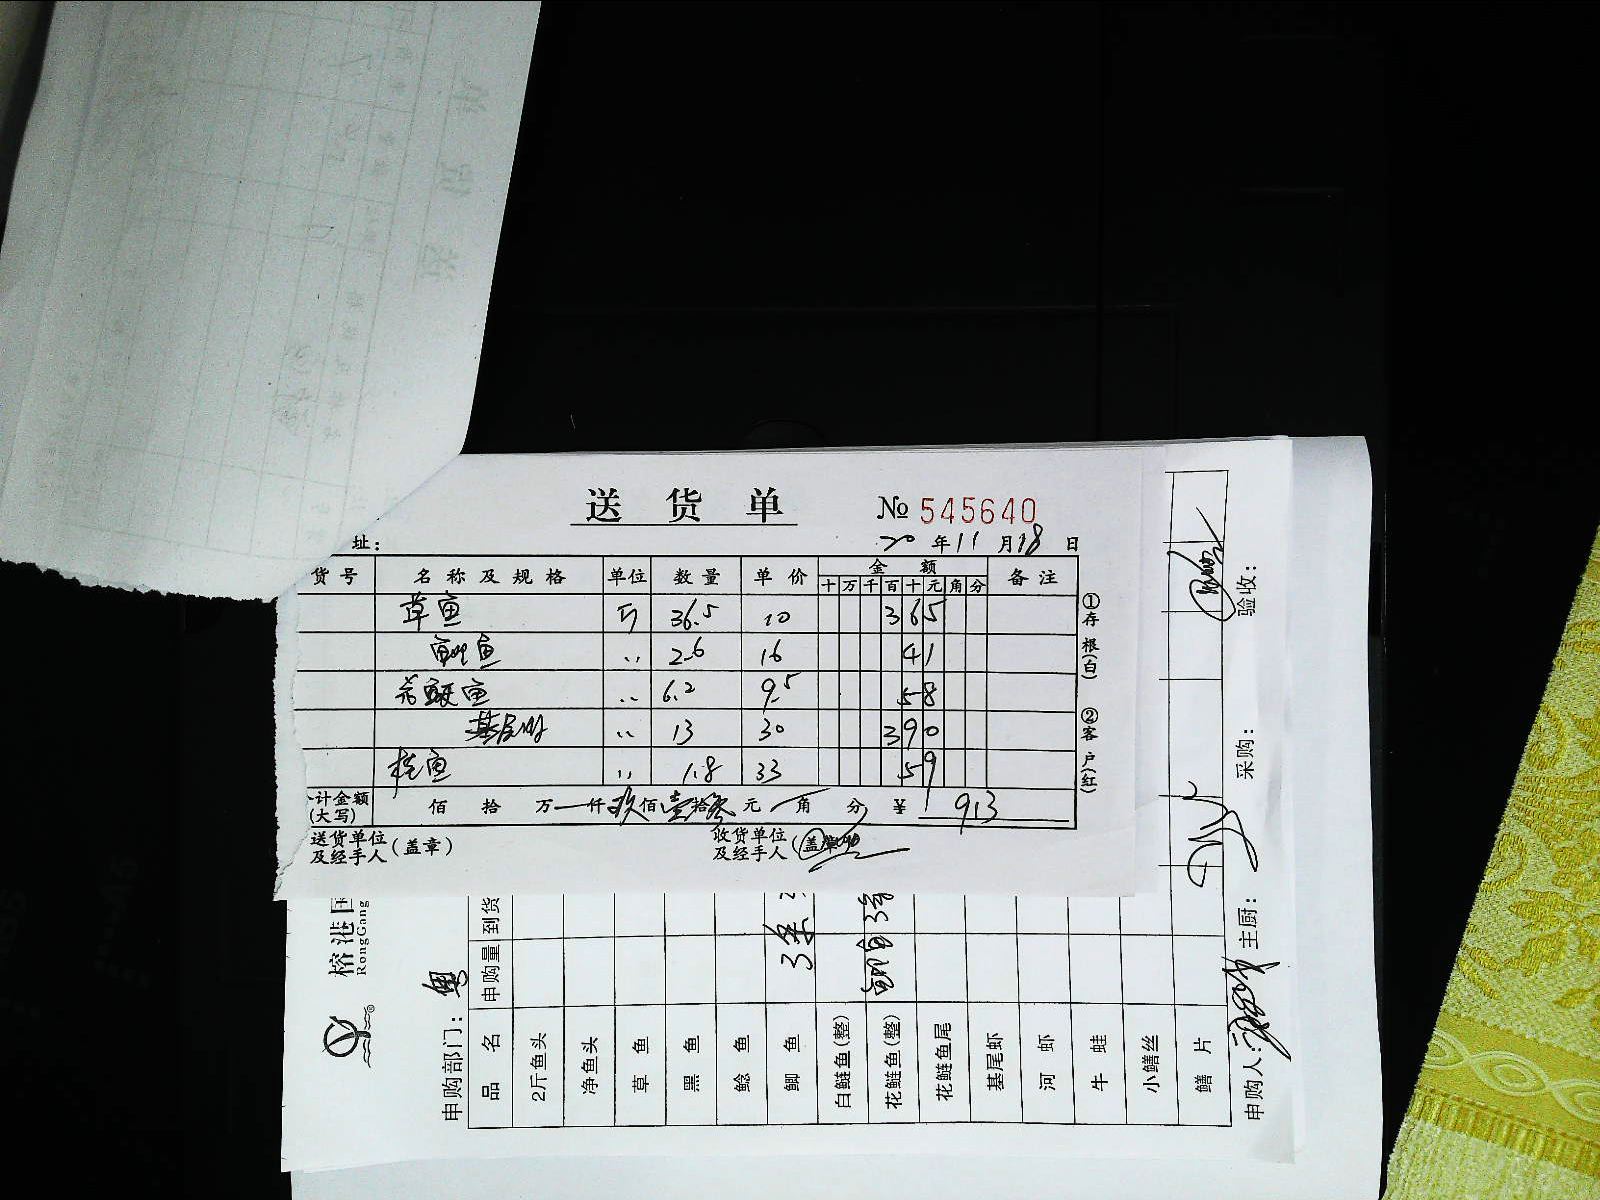 送货单 № 545640
址： 20 年 11 月 18 日
货号 名称及规格 单位 数量 单价 金额 备注
十 万 千 百 十 元 角 分
草鱼 斤 36.5 10 365
鲈鱼 〃 2.6 16 41
花鲢鱼 〃 6.2 9.5 58
基尾虾 〃 13 30 390
桂鱼 〃 1.8 33 59
计金额(大写) 佰 拾 万 仟 玖 佰 壹 拾 叁 元 角 分 ¥ 913
送货单位及经手人(盖章) 收货单位及经手人(盖章)
①存根(白) ②客户(红)
榕港国
RongGang
申购部门： 粤
品名 申购量 到货
2斤鱼头
净鱼头
草鱼
黑鱼
鲶鱼
鲫鱼 3条
白鲢鱼(整)
花鲢鱼(整) 鲈鱼3条
花鲢鱼尾
基尾虾
河虾
牛蛙
小鳝丝
鳝片
申购人： 主厨： 采购： 验收：